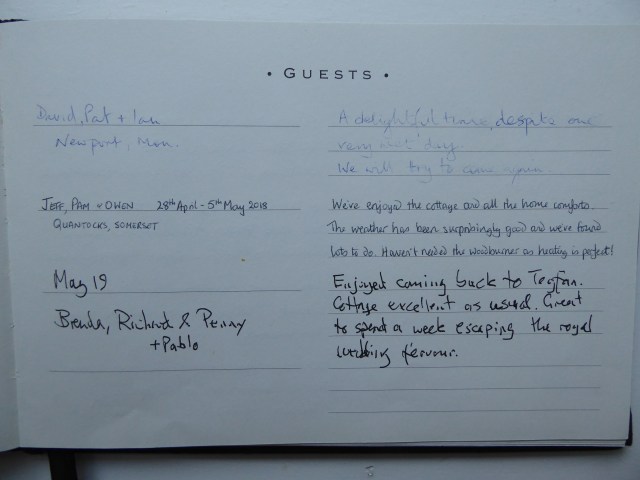 • GUESTS •
David, Pat + Ian
Newport, Mon.
A delightful time, despite one
very wet day.
We will try to come again.
JEFF, PAM + OWEN 28th April - 5th May 2018
QUANTOCKS, SOMERSET
We've enjoyed the cottage and all the home comforts.
The weather has been surprisingly good and we've found
lots to do. Haven't needed the woodburner as heating is perfect!
May 19
Brenda, Richard & Penny
+ Pablo
Enjoyed coming back to
Cottage excellent as usual. Great
to spend a week escaping the royal
wedding fervour.